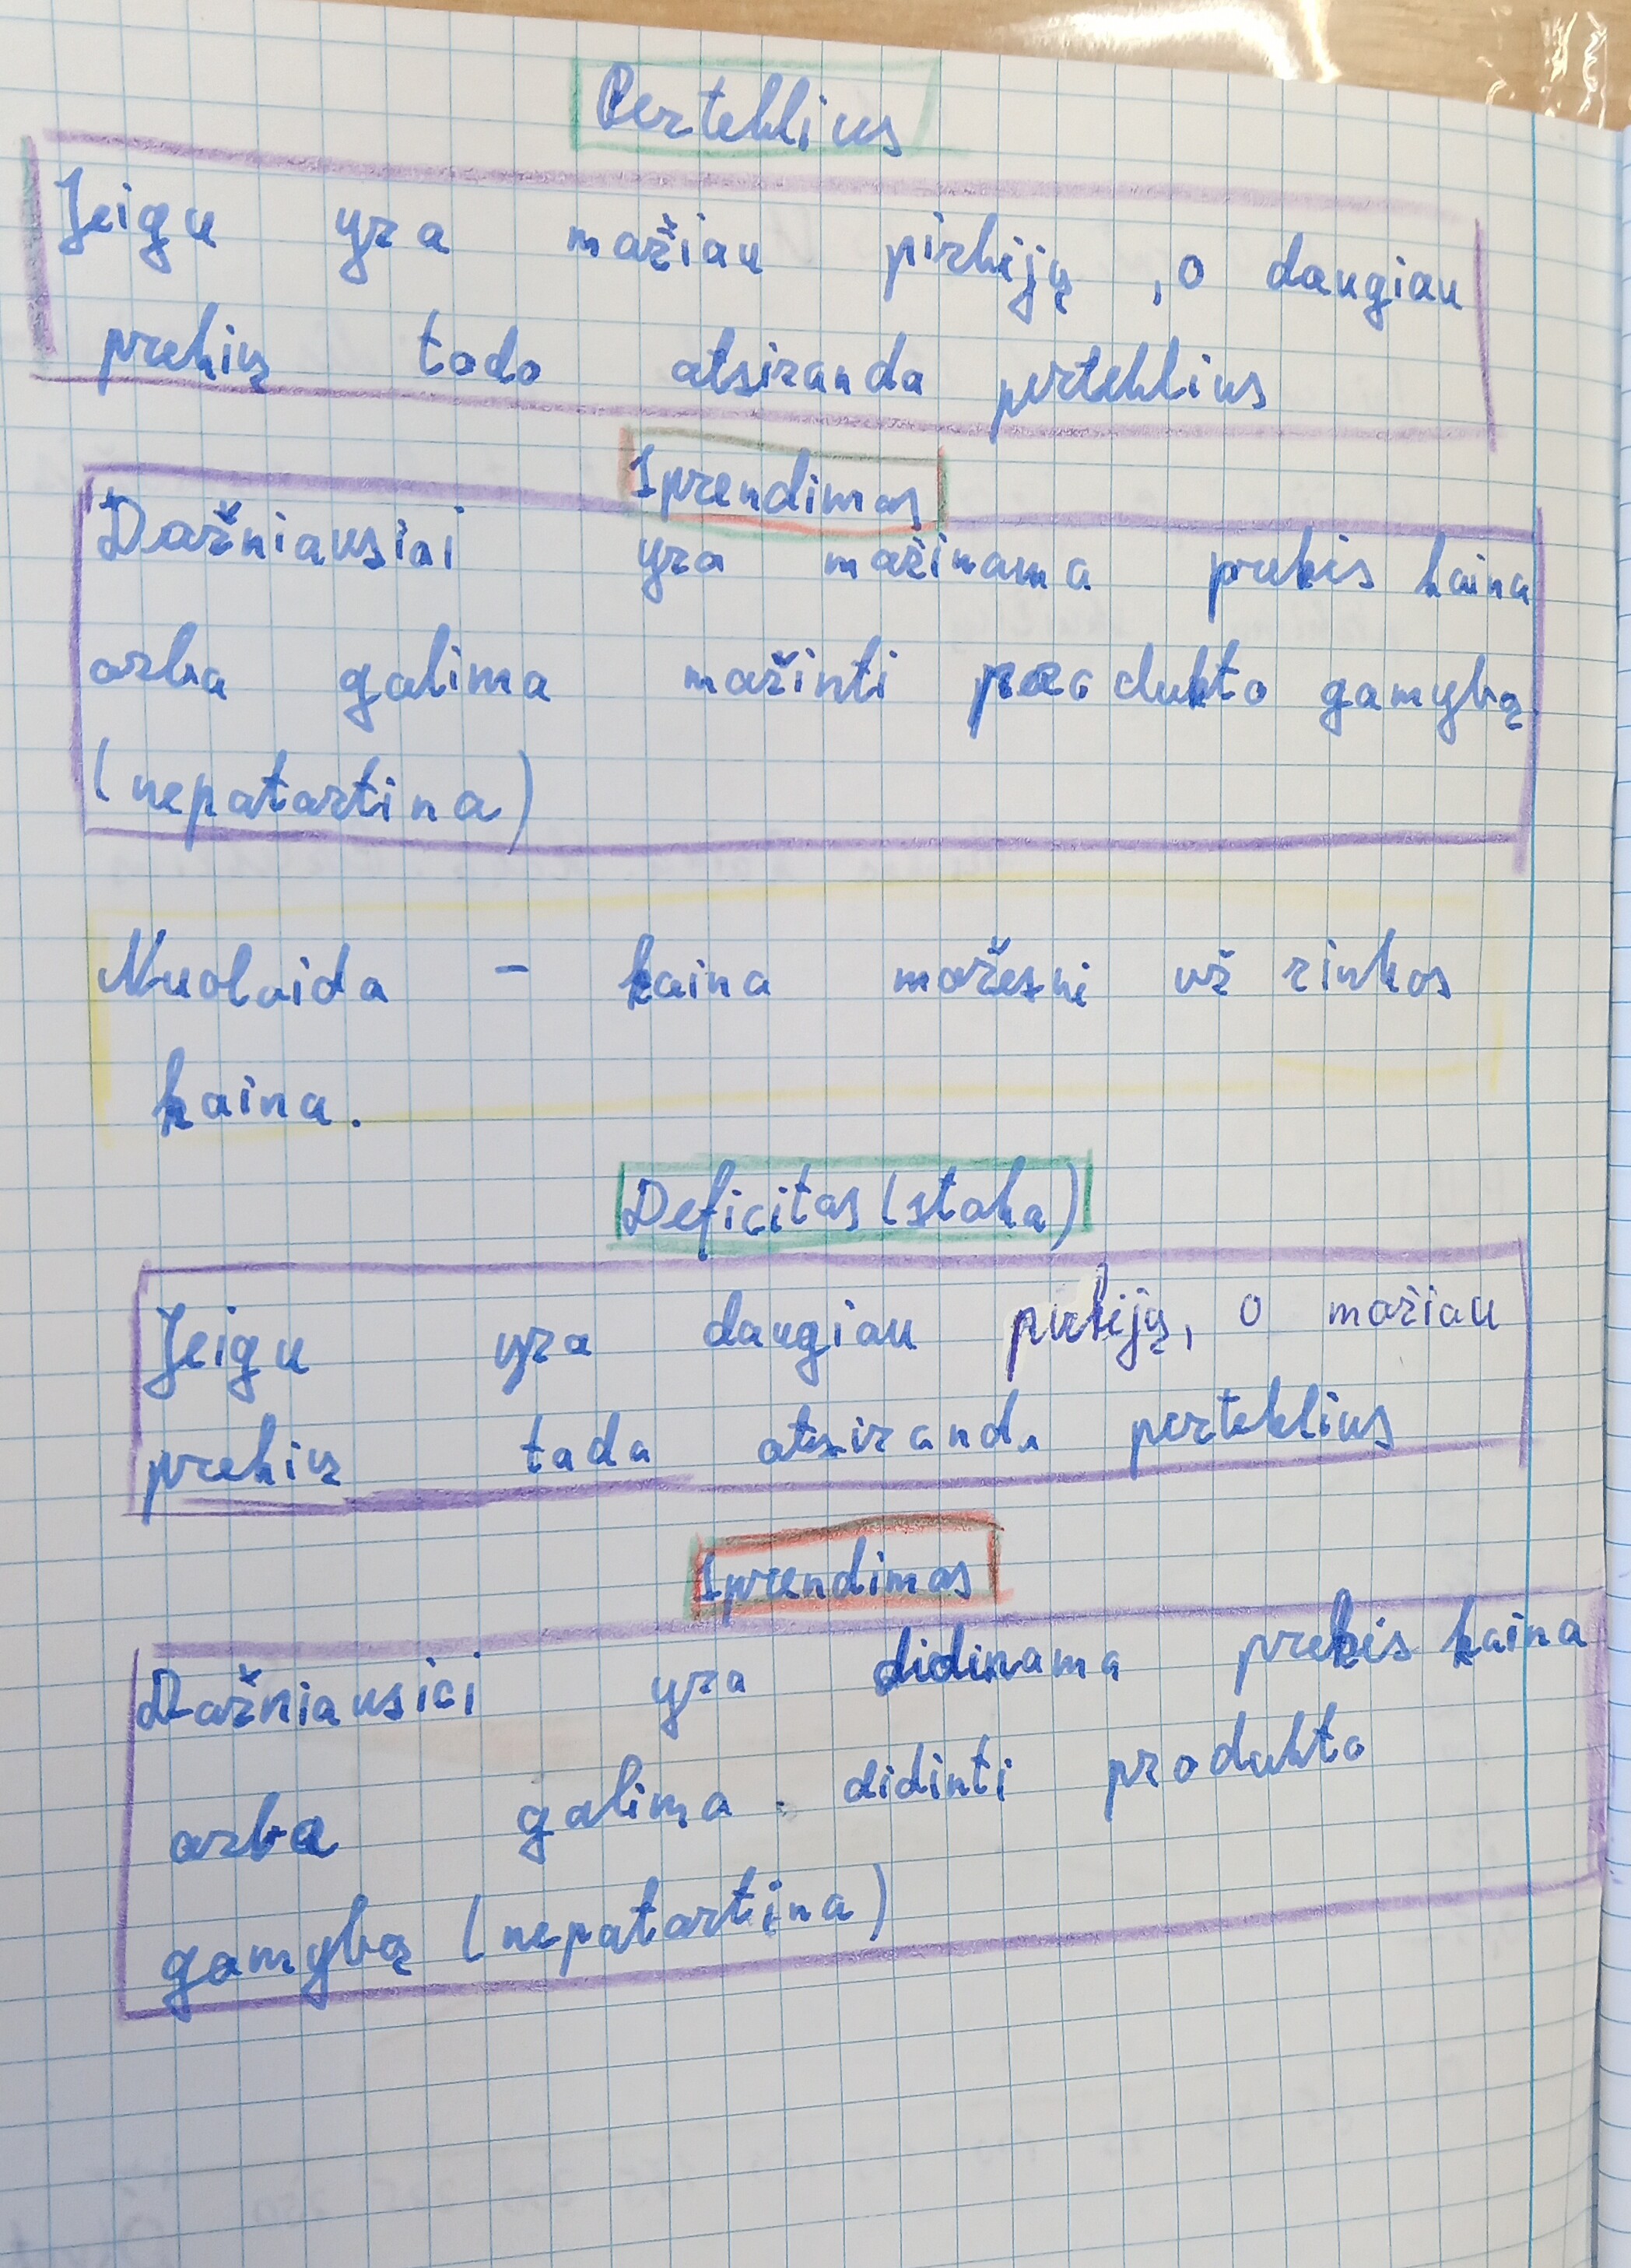 Perteklius
Jeigu yra mažiau pirkijų , o daugiau
prekių tado atsiranda perteklius
Sprendimas
Dažniausiai yra mažinama prekis kaina
arba galima mažinti produkto gamybą
(nepatartina)
Nuolaida - kaina mažesnė už rinkos
kaina.
Deficitas (stoka)
Jeigu yra daugiau pirkijų, o mažiau
prekių tada atsiranda perteklius
Sprendimas
Dažniausiai yra didinama prekis kaina
arba galima didinti produkto
gamybą (nepatartina)